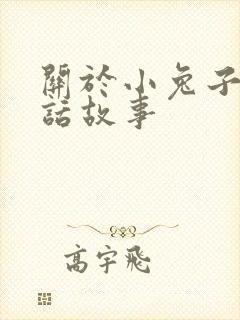 關於小兔子
話故事
高宇飛